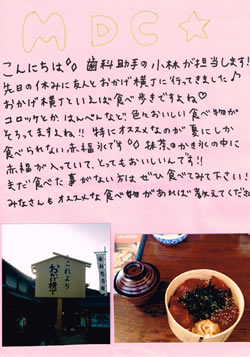 MDC☆
こんにちは 歯科助手の小林が担当します!
先日の休みに友人とおかげ横丁に行ってきました♪
おかげ横丁といえば食べ歩きですよね♡
コロッケとか、はんぺんなど 色々おいしい食べ物が
そろってますよね!! 特にオススメなのが 夏にしか
食べられない赤福氷です 抹茶のかき氷の中に
赤福が入っていて、とってもおいしいんです!!
まだ食べた事がない方は ぜひ食べてみて下さい!
みなさんもオススメな食べ物があれば教えてくださ
これより
おかげ横丁